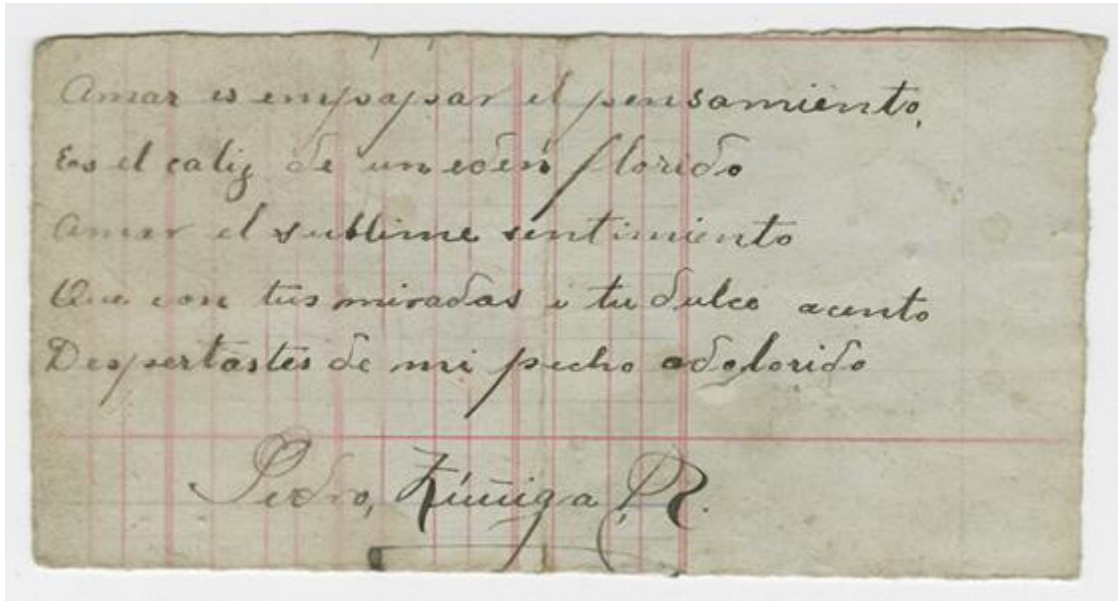 Amar es empapar el pensamiento,
Es el caliz de un eden florido
Amar el sublime sentimiento
Que con tus miradas i tu dulce acento
Despertastes de mi pecho adolorido
Pedro, Zúñiga, R.